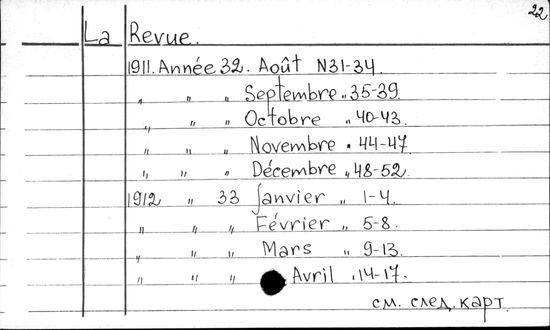 22
La Revue.
1911. Année 32. Août N31-34.
" " " Septembre " 35-39.
" " " Octobre " 40-43.
" " " Novembre " 44-47
" " " Décembre " 48-52.
1912 " 33 Janvier " 1-4.
" " " Février " 5-8.
" " " Mars " 9-13.
" " " Avril " 14-17.
см. след. карт.